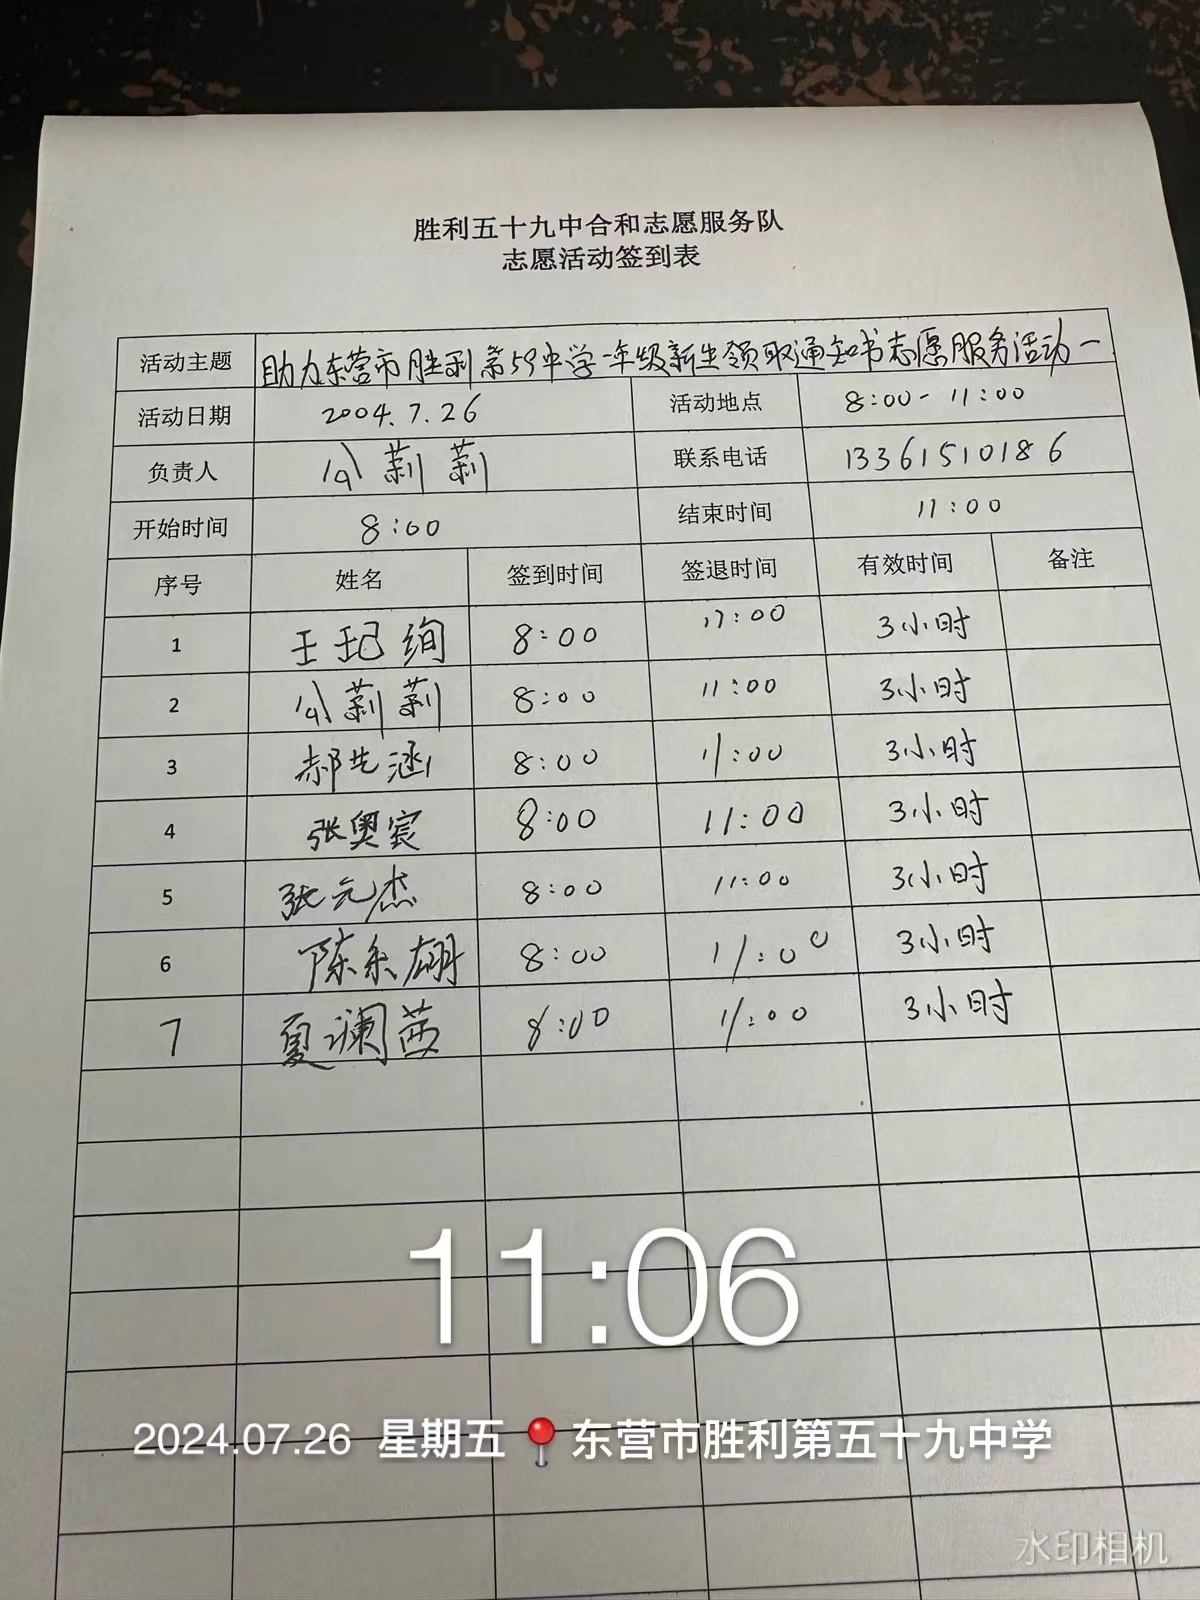 胜利五十九中合和志愿服务队
志愿活动签到表
活动主题 助力东营市胜利第59中学一年级新生领取通知书志愿服务活动一
活动日期 2004.7.26 活动地点 8:00-11:00
负责人 莉莉 联系电话 13361510186
开始时间 8:00 结束时间 11:00
序号 姓名 签到时间 签退时间 有效时间 备注
1 王玘绚 8:00 11:00 3小时
2 莉莉 8:00 11:00 3小时
3 郝艺涵 8:00 11:00 3小时
4 张奥宸 8:00 11:00 3小时
5 张元杰 8:00 11:00 3小时
6 陈 8:00 11:00 3小时
7 夏谰茜 8:00 11:00 3小时
11:06
2024.07.26 星期五 东营市胜利第五十九中学
水印相机